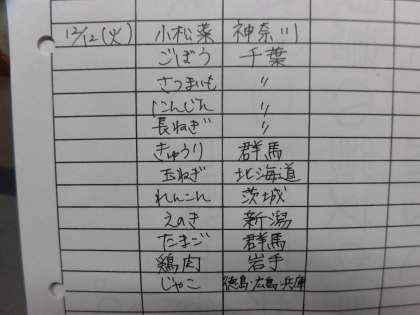 12/12(火) 小松菜 神奈川
ごぼう 千葉
さつまいも 〃
にんじん 〃
長ねぎ 〃
きゅうり 群馬
玉ねぎ 北海道
れんこん 茨城
えのき 新潟
たまご 群馬
鶏肉 岩手
じゃこ 徳島・広島・兵庫